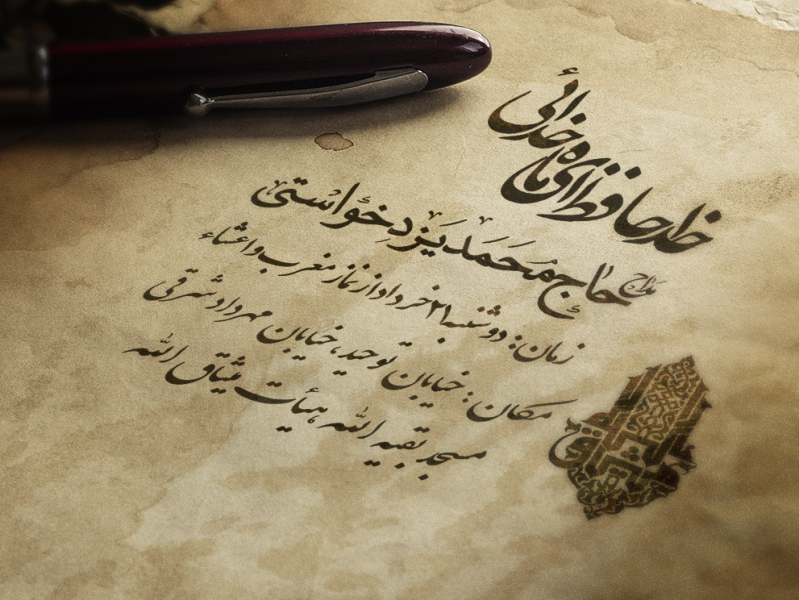 خداحافظ ای ماه خدائی
مداح حاج محمد یزدخواستی
زمان: دوشنبه ۲۱ خرداد از نماز مغرب و اعشاء
مکان: خیابان توحید، خیابان مهرداد شرقی
مسجد بقیه الله هیأت میثاق الله